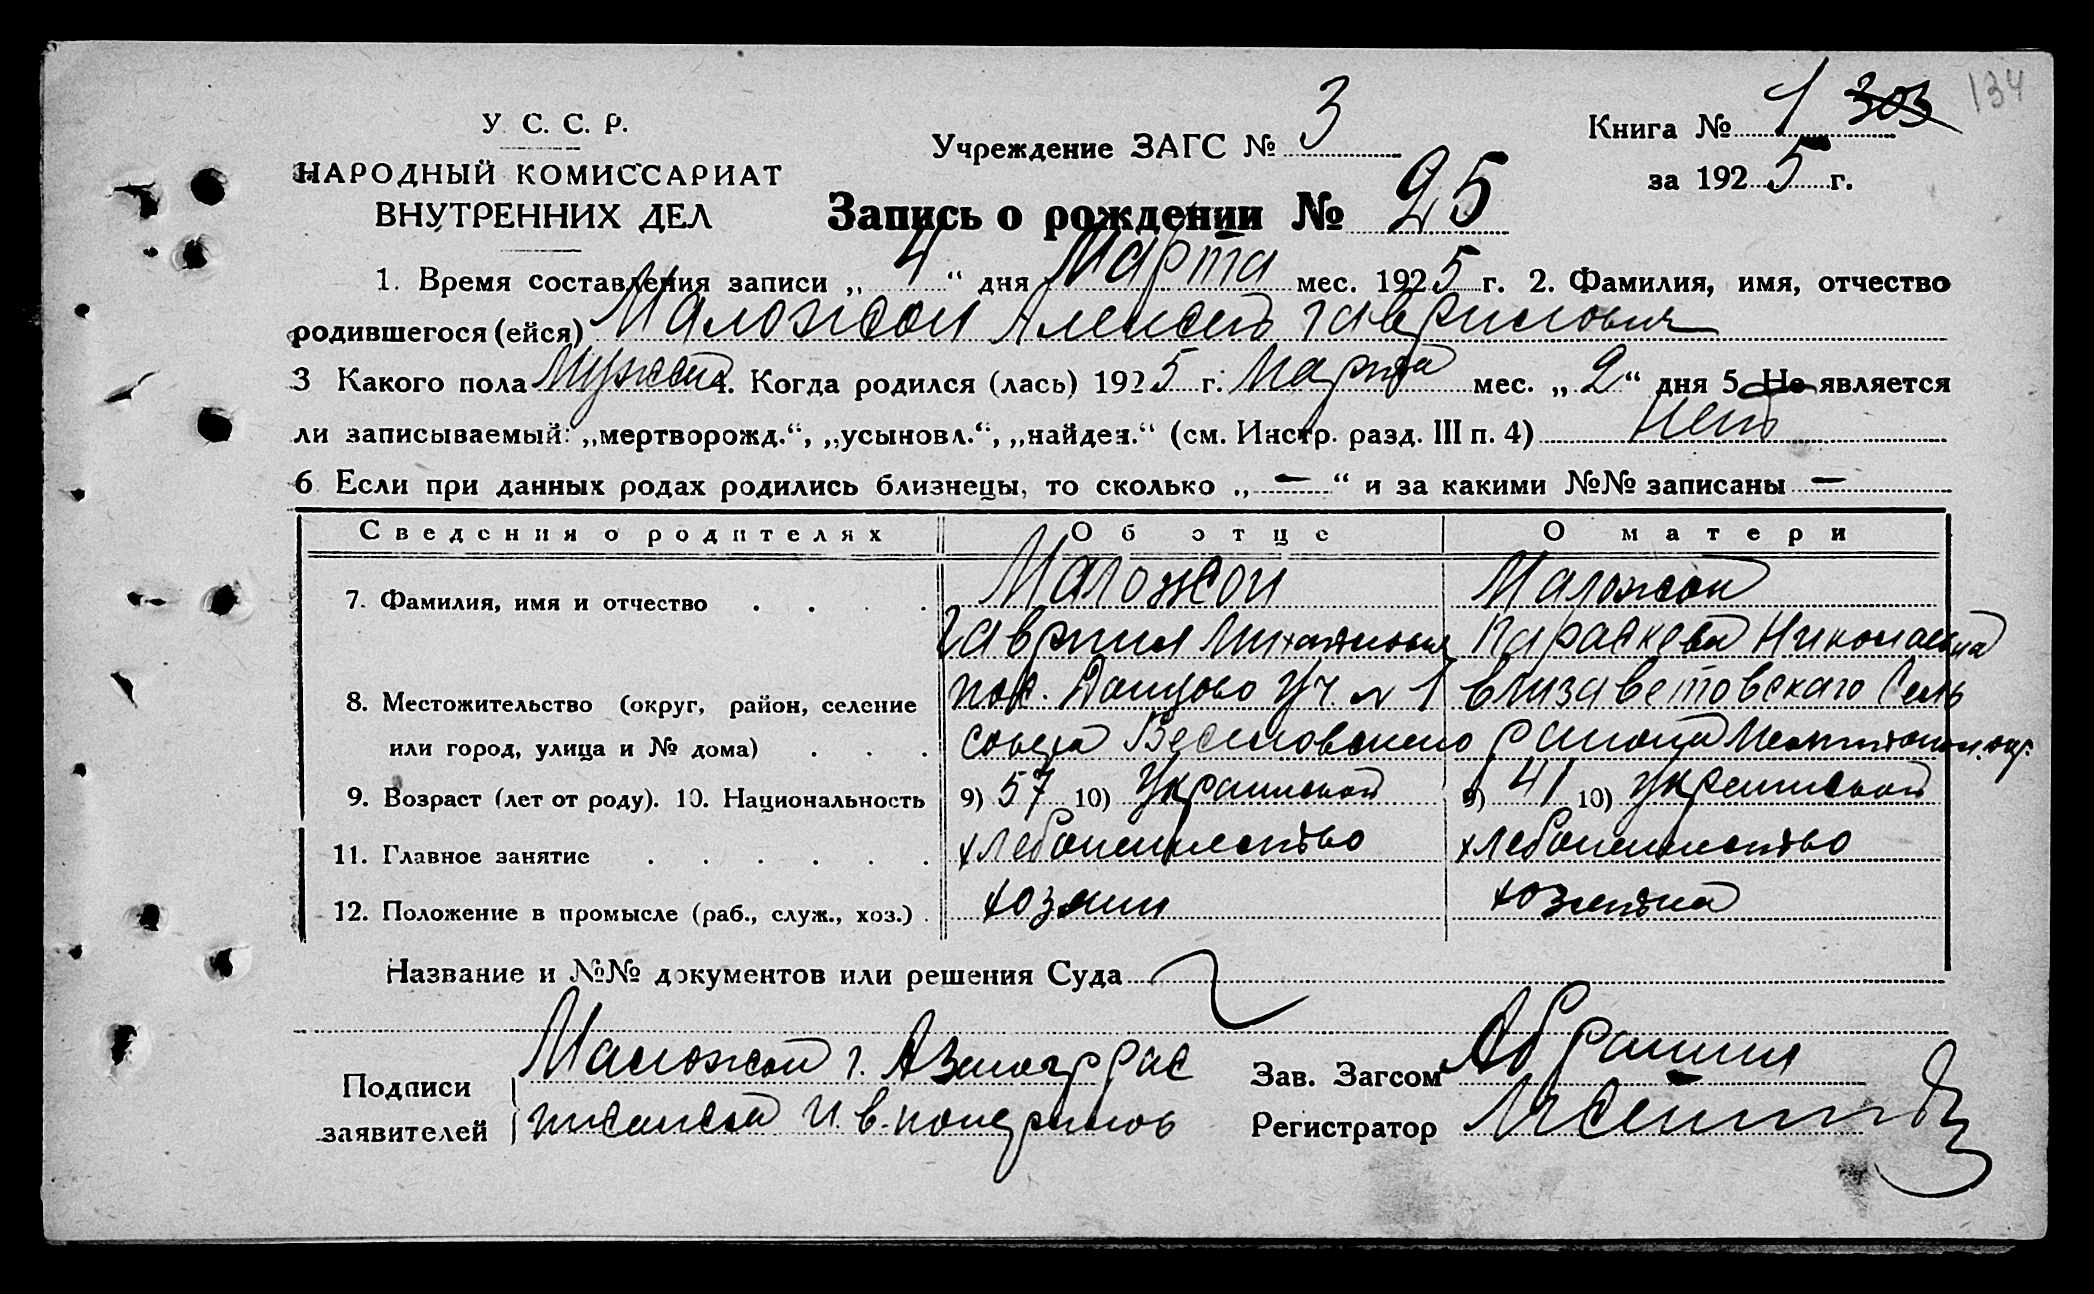 134
У. С. С. Р.
НАРОДНЫЙ КОМИССАРИАТ
ВНУТРЕННИХ ДЕЛ
Учреждение ЗАГС № 3
Книга № 1 303
за 1925 г.
Запись о рождении № 25
1. Время составления записи „4“ дня Марта мес. 1925 г. 2. Фамилия, имя, отчество
родившегося (ейся) Маложон Алексей Гаврилович
3 Какого пола Мужской 4. Когда родился (лась) 1925 г. Марта мес. „2“ дня 5. Не является
ли записываемый: „мертворожд.“, „усыновл.“, „найден.“ (см. Инстр. разд. III п. 4) Нет
6 Если при данных родах родились близнецы, то сколько „—“ и за какими №№ записаны —
Сведения о родителях Об отце О матери
7. Фамилия, имя и отчество Маложон Маложон
Гаврил Михайлович Параскева Николаевна
8. Местожительство (округ, район, селение пос. уч. № 1 Елизаветовского Сель
или город, улица и № дома) совета Веселовского района
9. Возраст (лет от роду). 10. Национальность 9) 57 10) Украинской 9) 41 10) Украинской
11. Главное занятие хлебопашество хлебопашество
12. Положение в промысле (раб., служ., хоз.) хозяин хозяйка
Название и №№ документов или решения Суда
Подписи Маложон Г.
Зав. Загсом
заявителей
Регистратор